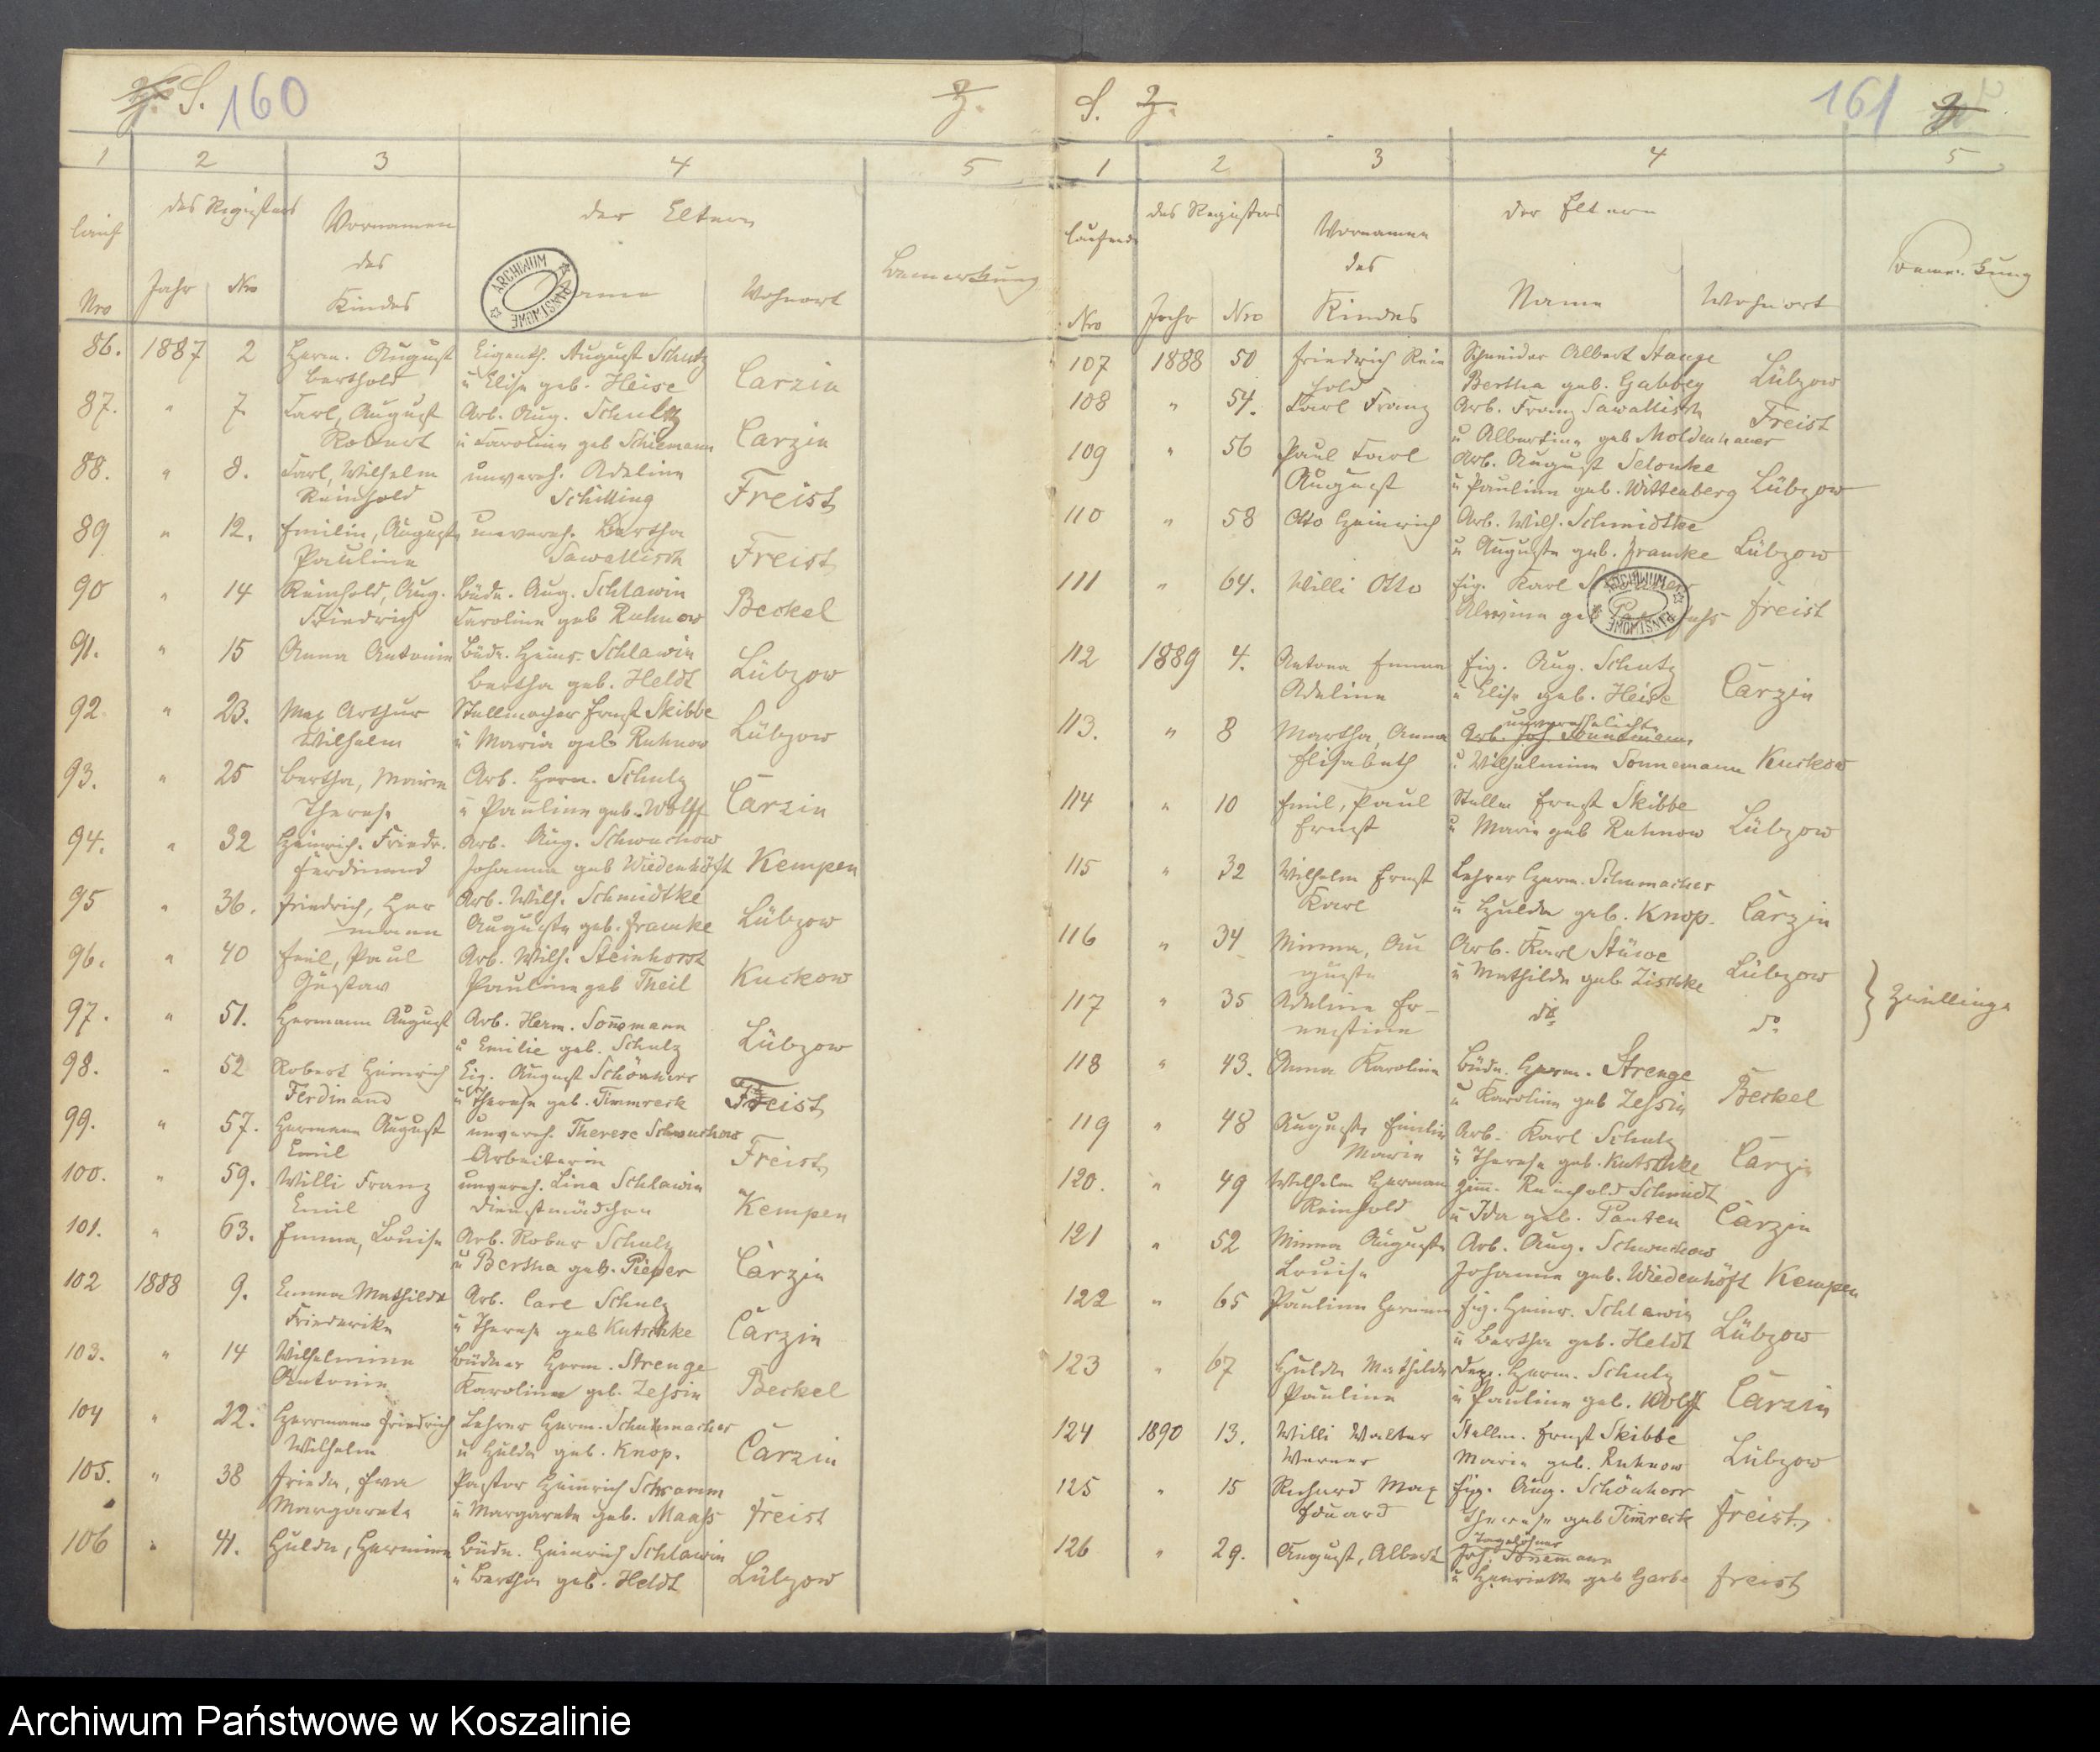 S. 160 Z.
1 2 3 4 5
des Registers
Vornamen
der Eltern
lauf
des
Bemerkung
Jahr Nro
Kindes
Wohnort
Nro
86. 1887 2 Herm. August Eigenth. August Schulz
Berthold u Elise geb. Heise Carzin
87. " 7. Carl, August Arb. Aug. Schulz
Robert u Caroline geb Schiemann Carzin
88. " 8. Carl, Wilhelm unvereh. Adeline
Reinhold Schilling Freist
89 " 12. Emilie, Auguste unvereh. Bertha
Pauline Sawallisch Freist
90 " 14 Reinhold, Aug. Büdn. Aug. Schlawin
Friedrich Caroline geb Ruhnow Beckel
91. " 15 Anna Antonie Büdn. Heinr. Schlawin
Bertha geb. Heldt Lübzow
92 " 23. Max Arthur Stellmacher Ernst Skibbe
Wilhelm u Maria geb Ruhnow Lübzow
93. " 25 Bertha, Marie Arb. Herm. Schulz
Therese u Pauline geb. Wolff Carzin
94. " 32 Heinrich. Friedr. Arb. Aug. Schwuchow
Ferdinand Johanna geb Wiedenhöft Kempen
95 " 36. Friedrich, Her Arb. Wilh. Schmidtke
mann Auguste geb. Framke Lübzow
96. " 40 Emil, Paul Arb. Wilh. Steinhorst
Gustav Pauline geb Theil Kuckow
97. " 51. Hermann August Arb. Herm. Sonnemann
u Emilie geb. Schulz Lübzow
98. " 52 Robert Heinrich Eig. August Schönherr
Ferdinand u Therese geb. Timmreck Freist
99. " 57. Hermann August unvereh. Therese Schwuchow
Emil Arbeiterin Freist
100. " 59. Willi Franz unvereh. Lina Schlawin
Emil Dienstmädchen Kempen
101. " 63. Emma, Louise Arb. Rober Schulz
u Bertha geb. Pieper Carzin
102 1888 9. Emma Mathilde Arb. Carl Schulz
Friederike u Therese geb Kutschke Carzin
103. " 14 Wilhelmine Büdner Herm. Strenge
Antonie Karoline geb. Zessin Beckel
104 " 22. Herrmann Friedrich Lehrer Herm. Schuhmacher
Wilhelm u Hulda geb. Knop. Carzin
105. " 38 Frieda, Ewa Pastor Heinrich Schramm
Margarete u Margarete geb. Maaß Freist
106 " 41. Hulda, Hermine Büdn. Heinrich Schlawin
u Bertha geb. Heldt Lübzow
S. Z. 161
1 2 3 4 5
des Registers
der Eltern
laufende Vornamen
des
Bemerkung
Nro Jahr Nro Kindes Name Wohnort
107 1888 50 Friedrich Rein Schneider Albert Stange
hold Bertha geb. Gabbey Lübzow
108 " 54. Karl Franz Arb. Franz Sawallisch
u Albertine geb Moldenhauer Freist
109 " 56 Paul Karl Arb. August Selonke
August u Pauline geb. Wittenberg Lübzow
110 " 58 Otto Heinrich Arb. Wilh. Schmidtke
u Auguste geb. Framke Lübzow
111 " 64. Willi Otto Eig. Karl
Alwine geb Freist
112 1889 4. Antona Emma Eig. Aug. Schulz
Adeline u Elise geb. Heise Carzin
unverehelichte
113. " 8 Martha, Anna Arb. Joh. Sonnemann
Elisabeth u Wilhelmine Sonnemann Kuckow
114 " 10 Emil, Paul Stellm Ernst Skibbe
Ernst u Marie geb Ruhnow Lübzow
115 " 32 Wilhelm Ernst Lehrer Herm. Schumacher
Karl u Hulda geb. Knop. Carzin
116 " 34 Minna, Au Arb. Karl Stüwe
guste u Mathilde geb. Zischke Lübzow
Zwillinge
117 " 35 Adeline Er- do do
nestine
118 " 43. Anna Karoline Büdn. Herm. Strenge
u Karoline geb Zessin Beckel
119 " 48 Auguste Emilie Arb. Karl Schulz
Marie u Therese geb. Kutschke Carzin
120. " 49 Wilhelm Herman Zimm. Reinhold Schmidt
Reinhold u Ida geb. Panten Carzin
121 " 52 Minna Auguste Arb. Aug. Schwuchow
Louise Johanna geb. Wiedenhöft Kempen
122 " 65 Pauline Hermine Eig. Heinr. Schlawin
u Bertha geb. Heldt Lübzow
123 " 67 Hulda Mathilde Herm. Schulz
Pauline u Pauline geb. Wolff Carzin
124 1890 13. Willi Walter Stellm. Ernst Skibbe
Werner Marie geb. Ruhnow Lübzow
125 " 15 Richard Max Eig. Aug. Schönherr
Eduard Therese geb Timmreck Freist
Tagelöhner
126 " 29. August, Albert Joh. Sonnemann
u Henriette geb Garbe Freist
ARCHIWUM PAŃSTWOWE
ARCHIWUM PAŃSTWOWE
Archiwum Państwowe w Koszalinie